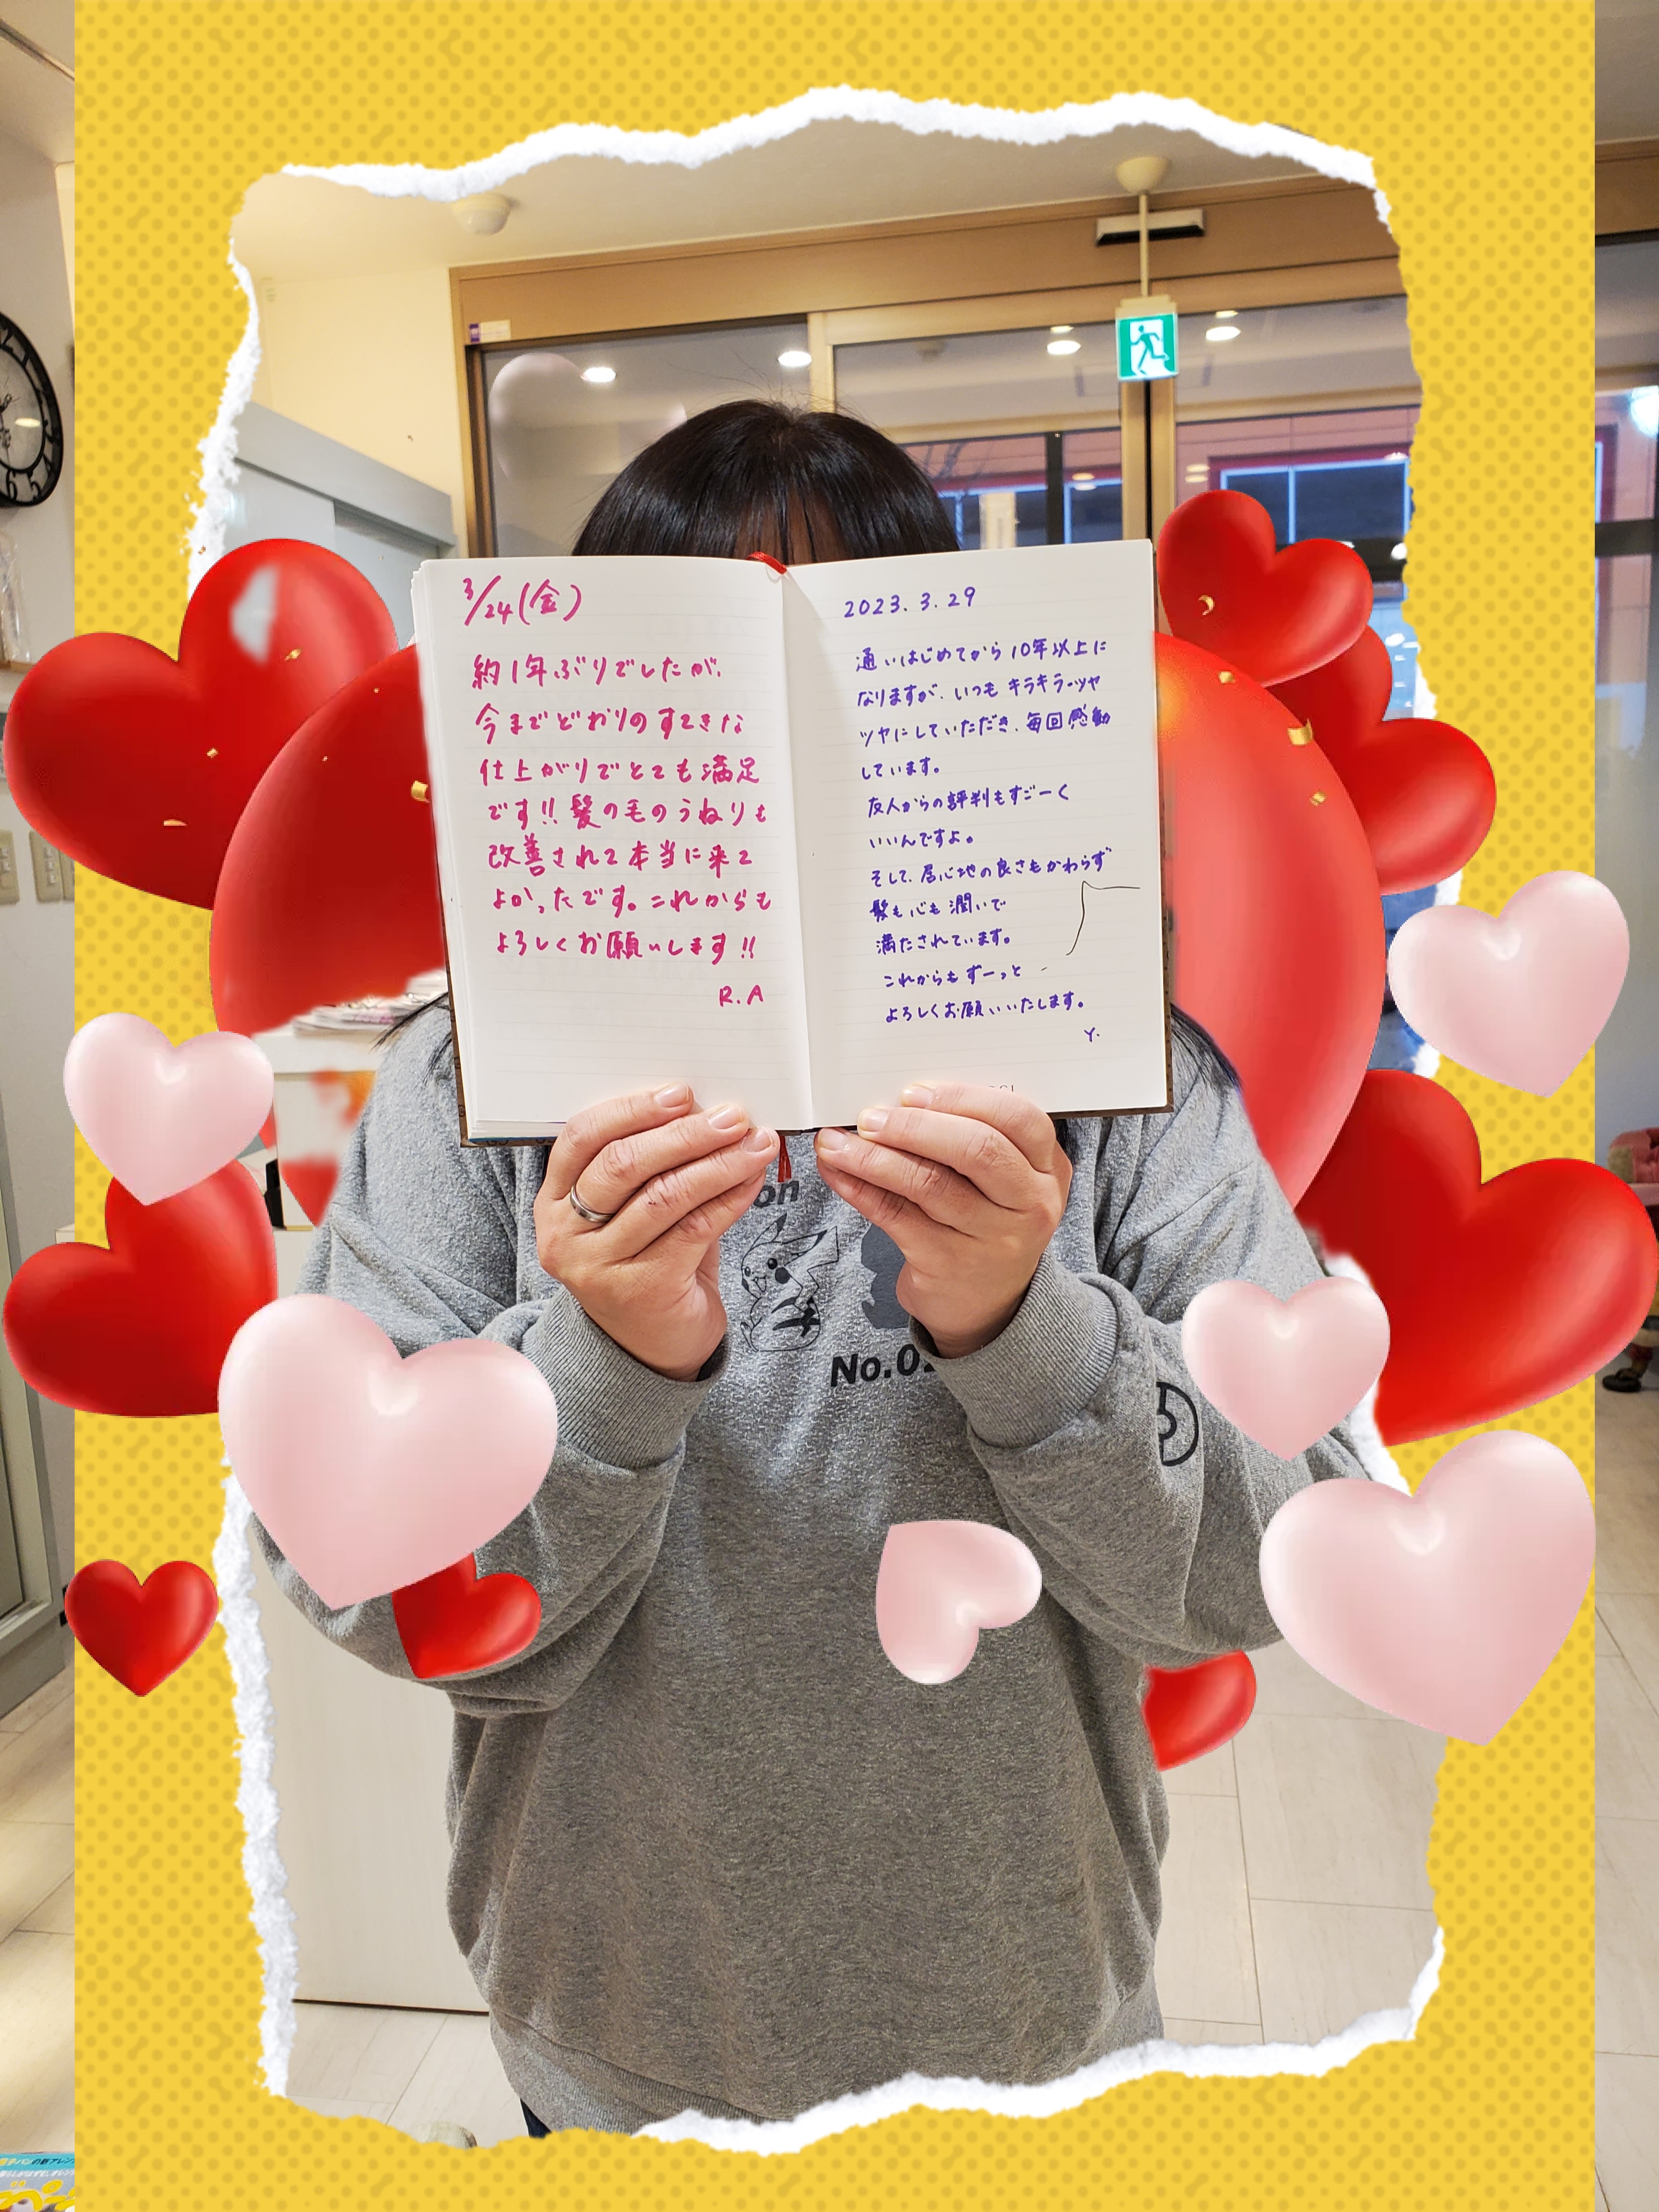 3/24(金)
約1年ぶりでしたが、
今までどおりのすてきな
仕上がりでとても満足
です!!髪の毛のうねりも
改善されて本当に来て
よかったです。これからも
よろしくお願いします!!
R.A
2023.3.29
通いはじめてから10年以上に
なりますが、いつもキラキラ〜ツヤ
ツヤにしていただき、毎回感動
しています。
友人からの評判もすごーく
いいんですよ。
そして、居心地の良さもかわらず
髪も心も潤いで
満たされています。
これからもずーっと
よろしくお願いいたします。
Y.
on
No.02